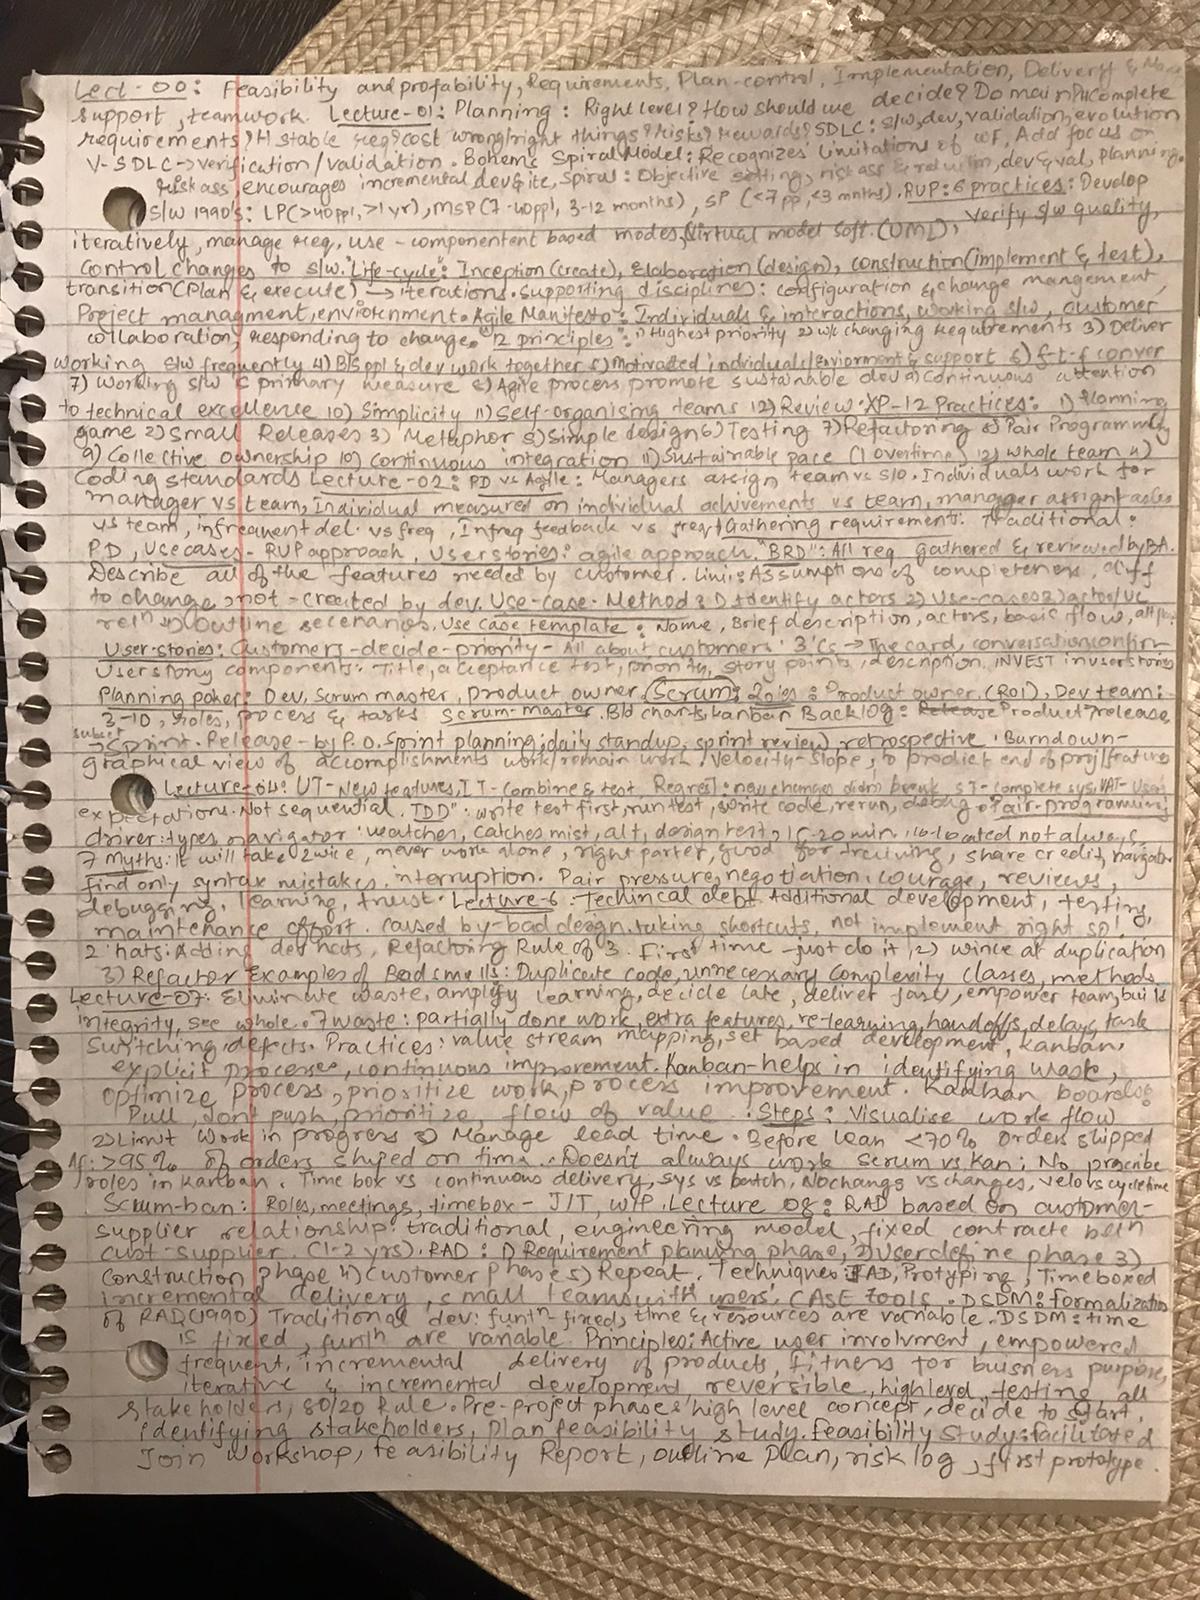 Lect-00: Feasibility and profability, Requirements, Plan-control, Implementation, Delivery &
support, teamwork. Lecture-01: Planning: Right level? How should we decide? Domain? Complete
requirements? H stable req? cost wrong/right things? risks? rewards? SDLC: s/w, dev, validation, evolution
V-SDLC → verification/validation. Bohem's Spiral Model: Recognizes limitations of WF, Add focus on
Risk ass, encourages incremental dev & ite, Spiral: Objective setting, risk ass & reduction, dev & val, planning.
S/W 1990's: LP (>40ppl, >1yr), MSP (7-40ppl, 3-12 months), SP (<7pp, <3 mnths). RUP: 6 practices: Develop
iteratively, manage req, use-componentent based modes, Virtual model soft. (UML), Verify s/w quality,
control changes to s/w. "Life-cycle": Inception (create), Elaboration (design), construction (implement & test),
transition (Plan & execute) → iterations. Supporting disciplines: configuration & change mangement,
Project managment, enviornment. Agile Manifesto: Individuals & interactions, working s/w, customer
collaboration, responding to change. "12 principles": 1) Highest priority 2) w/c changing requirements 3) Deliver
working s/w frequently 4) B/S ppl & dev work together 5) Motivated individuals/Enviorment & support 6) f-t-f conver
7) Working s/w primary measure 8) Agile process promote sustainable dev 9) Continuous attention
to technical excellence 10) Simplicity 11) Self-organising teams 12) Review. XP-12 Practices: 1) Planning
game 2) Small Releases 3) Metaphor 5) Simple design 6) Testing 7) Refactoring 8) Pair Programming
9) Collective ownership 10) Continuous integration 11) Sustainable pace (1 overtime) 12) Whole team 4)
Coding standards Lecture-02: PD vs Agile: Managers assign team vs S/O. Individuals work for
manager vs team, Individual measured on individual achivements vs team, manager assign tasks
vs team, infrequent del. vs freq, Infreq feedback vs freq. Gathering requirement: Traditional:
PD, Usecases - RUP approach, Userstories: agile approach. "BRD": All req gathered & reviewed by BA.
Describe all of the features needed by customer. Limi: Assumptions of completeness, diff
to change, not-created by dev. Use-Case-Method: 1) Identify actors 2) Use-cases 3) actor/UC
reln 4) Outline secenarios. Use Case template: Name, Brief description, actors, basic flow, alt
User-stories: Customers-decide-priority - All about customers. 3'Cs → The card, conversation, confirm
Userstory components: Title, acceptance test, priority, story points, description. INVEST in userstories
Planning poker: Dev, Scrum master, product owner. Scrum: Roles: Product owner (ROI), Dev team:
3-10, roles, process & tasks Scrum-master. B/d charts, kanban Backlog: Release Product → release,
subset
→ Sprint. Release - by P.O. Sprint planning, daily standup, sprint review, retrospective. Burndown-
graphical view of accomplishments work/remain work. Velocity-slope, to predict end of proj/feature
Lecture-04: UT-New features, IT-combine & test, Regres: new changes didn't break ST-complete sys, UAT-User
expectations. Not sequential. TDD": write test first, run test, write code, rerun, debug. Pair-programming
driver: types, navigator: watches, catches mist, alt, design test, 15-20 min, not always
7 Myths: It will take 2wice, never work alone, right parter, good for training, share credit, navigator
find only syntax mistakes, interruption. Pair pressure, negotiation, courage, reviews,
debugging, learning, trust. Lecture-6: Techincal debt Additional development, testing
maintenance effort. caused by-bad design, taking shortcuts, not implement right so!
2 hats: Adding dev hats, Refactoring Rule of 3. First time - just do it, 2) wince at duplication
3) Refactor Examples of Bad smells: Duplicate code, unnecessary complexity classes, methods
Lecture-07: Eliminate waste, amplify learning, decide late, deliver fast, empower team, build
integrity, see whole. 7 waste: partially done work, extra features, re-learning, handoffs, delays, task
switching, defects. Practices: value stream mapping, set based development, kanban,
explicit processes, continuous improvement. Kanban-helps in identifying waste,
optimize process, prioritize work, process improvement. Kanban boards:
Pull, don't push, prioritize, flow of value. Steps: Visualise work flow
2) Limit work in progress 3) Manage lead time. Before lean <70% orders shipped
Af: >95% of orders shiped on time. Doesn't always work Scrum vs Kan: No prescribe
roles in Kanban. Time box vs continuous delivery, sys vs batch, No changs vs changes, velo vs cycle time
Scrum-ban: Roles, meetings, timebox - JIT, WIP. Lecture 08: RAD based on customer-
supplier relationship, traditional, engineering model, fixed contracte betn
cust-supplier. (1-2 yrs). RAD: 1) Requirement planning phase, 2) User define phase 3)
Construction phase 4) customer phase 5) Repeat. Techniques: JAD, Protyping, Timeboxed
incremental delivery, small teams with users, CASE tools. DSDM: formalization
of RAD (1990) Traditional dev: funtn-fixed, time & resources are variable. DSDM: time
is fixed, funtn are variable. Principles: Active user involvment, empowered
frequent, incremental delivery of products, fitness for buisners purpose,
iterative & incremental development, reversible, highlevel, testing all
stakeholders, 80/20 Rule. Pre-Project phase: high level concept, decide to start,
identifying stakeholders, plan feasibility study. Feasibility Study: facilitated
Join Workshop, feasibility Report, outline Plan, risk log, first prototype.